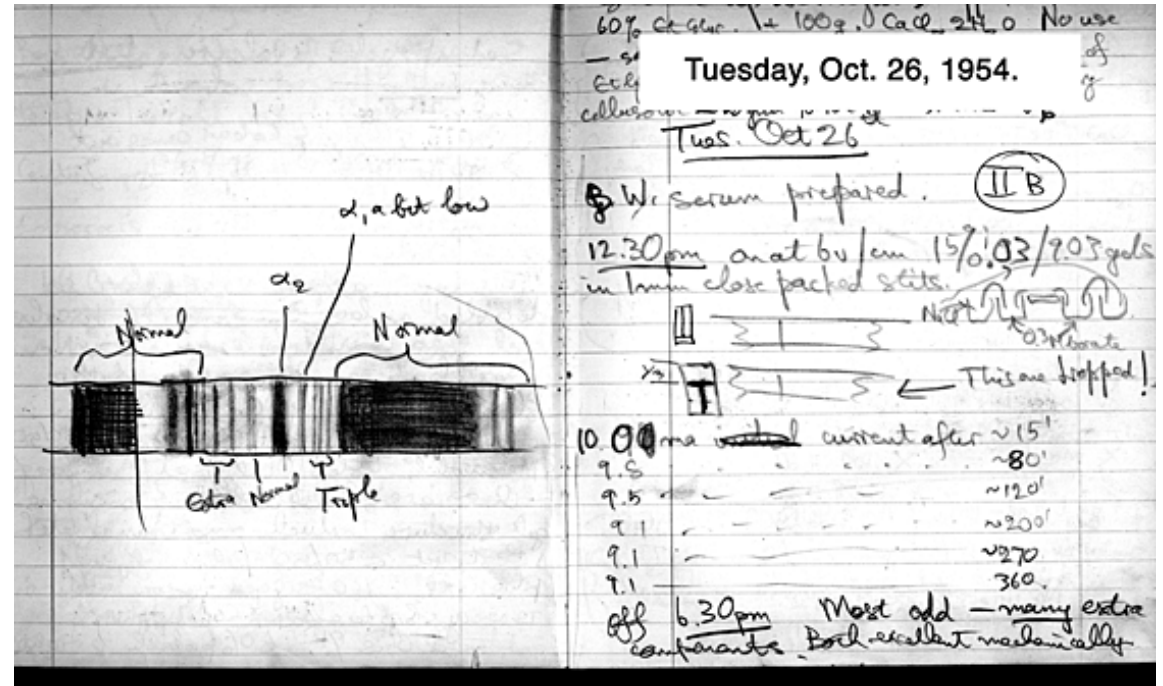 α, a bit low
α2
Normal
Normal
Extra Normal Triple
60% + 100g. CaCl2 2H2O No use
of
Tuesday, Oct. 26, 1954.
Tues. Oct 26th
W. serum prepared.
II B
12.30pm on at 6v/cm 15% .03/9.03 gels
in 1mm close packed slits.
NaCl
0.3M borate
This one dropped!
10.0 ma current after ~15'
9.8 ~80'
9.5 ~120'
9.1 ~200'
9.1 ~270
9.1 360.
off 6.30pm Most odd — many extra
components. Both excellent mechanically